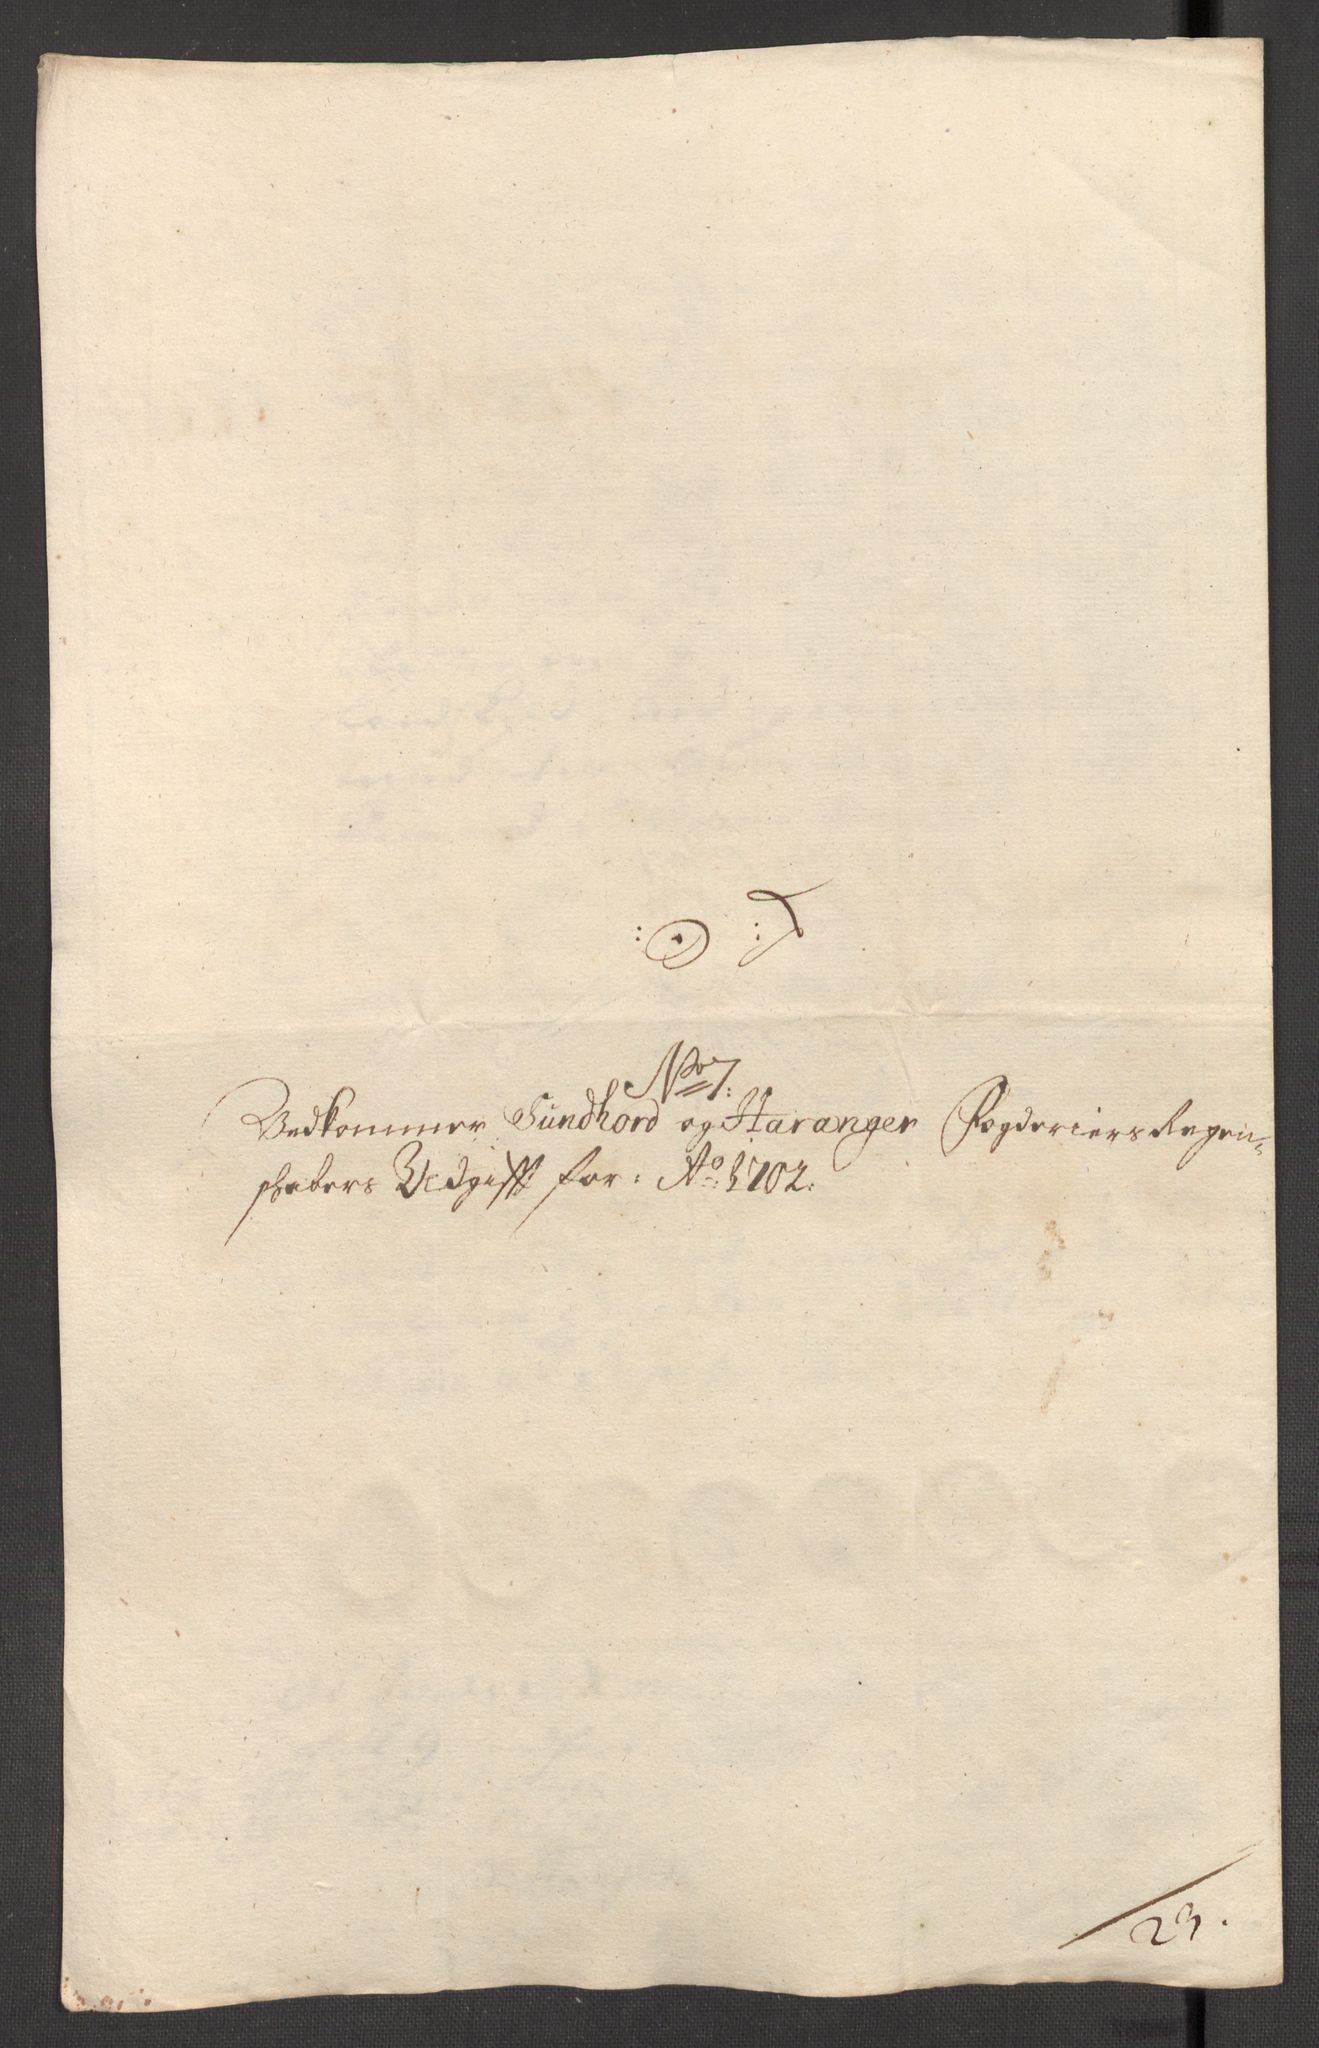 : ⊙ :
No 7:
Vedkommer Sundhord og Haranger Fogderiers Regen-
schabers Udgifft for: Ao: 1702:
29.